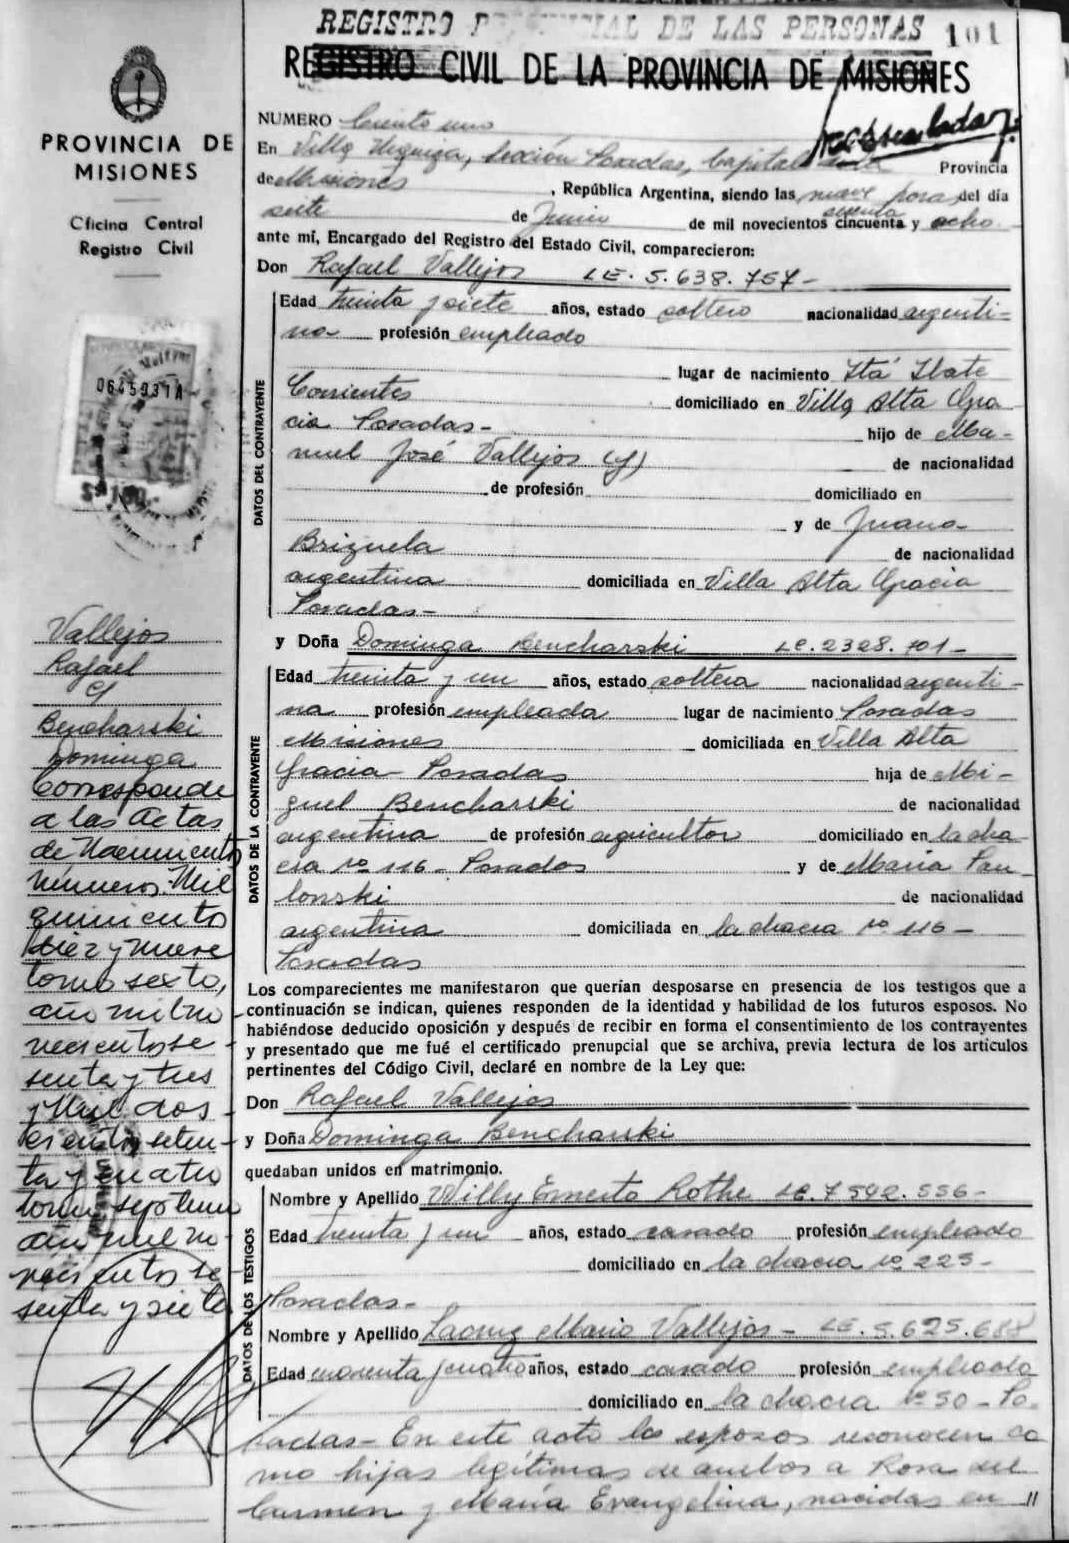 REGISTRO PROVINCIAL DE LAS PERSONAS 101
REGISTRO CIVIL DE LA PROVINCIA DE MISIONES
PROVINCIA DE
MISIONES
Oficina Central
Registro Civil
0645931A
NUMERO Ciento uno
En Villa Urquiza, Sección Posadas, Capital de la Provincia
de Misiones, República Argentina, siendo las nueve horas del día
siete de Junio de mil novecientos cincuenta y ocho.
sesenta
ante mí, Encargado del Registro del Estado Civil, comparecieron:
Don Rafael Vallejos LE. 5.638.757-
DATOS DEL CONTRAYENTE
Edad treinta y siete años, estado soltero nacionalidad argenti-
na profesión empleado
lugar de nacimiento Itá Ibate
Corrientes domiciliado en Villa Alta Gra
cia Posadas- hijo de Ma-
nuel José Vallejos (f) de nacionalidad
de profesión domiciliado en
y de Juana
Brizuela de nacionalidad
argentina domiciliada en Villa Alta Gracia
Posadas-
y Doña Dominga Bencharski LC. 2328.701-
DATOS DE LA CONTRAYENTE
Edad treinta y un años, estado soltera nacionalidad argenti-
na profesión empleada lugar de nacimiento Posadas
Misiones domiciliada en Villa Alta
Gracia Posadas hija de Mi-
guel Bencharski de nacionalidad
argentina de profesión agricultor domiciliado en la cha-
cra no 116 - Posadas y de María Pau
lonski de nacionalidad
argentina domiciliada en la chacra no 116 -
Posadas
Los comparecientes me manifestaron que querían desposarse en presencia de los testigos que a
continuación se indican, quienes responden de la identidad y habilidad de los futuros esposos. No
habiéndose deducido oposición y después de recibir en forma el consentimiento de los contrayentes
y presentado que me fué el certificado prenupcial que se archiva, previa lectura de los artículos
pertinentes del Código Civil, declaré en nombre de la Ley que:
Don Rafael Vallejos
y Doña Dominga Bencharski
quedaban unidos en matrimonio.
DATOS DE LOS TESTIGOS
Nombre y Apellido Willy Ernesto Rothe LE. 7.542.556-
Edad treinta y un años, estado casado profesión empleado
domiciliado en la chacra no 225-
Posadas-
Nombre y Apellido Mario Vallejos - LE. 5.625.688
Edad cuarenta y cuatro años, estado casado profesión empleado
domiciliado en la chacra no 50 - Po-
sadas - En este acto los esposos reconocen co
mo hijas legítimas de ambos a Rosa del
Carmen y María Evangelina, nacidas en //
Vallejos
Rafael
c/
Bencharski
Dominga
Corresponde
a las Actas
de Nacimiento
Números: Mil
quinientos
diez y nueve
tomo sexto,
año mil no
vecientos se
senta y tres
y Mil dos
cientos seten-
ta y cuatro
tomo septimo
año mil no
vecientos se
senta y siete